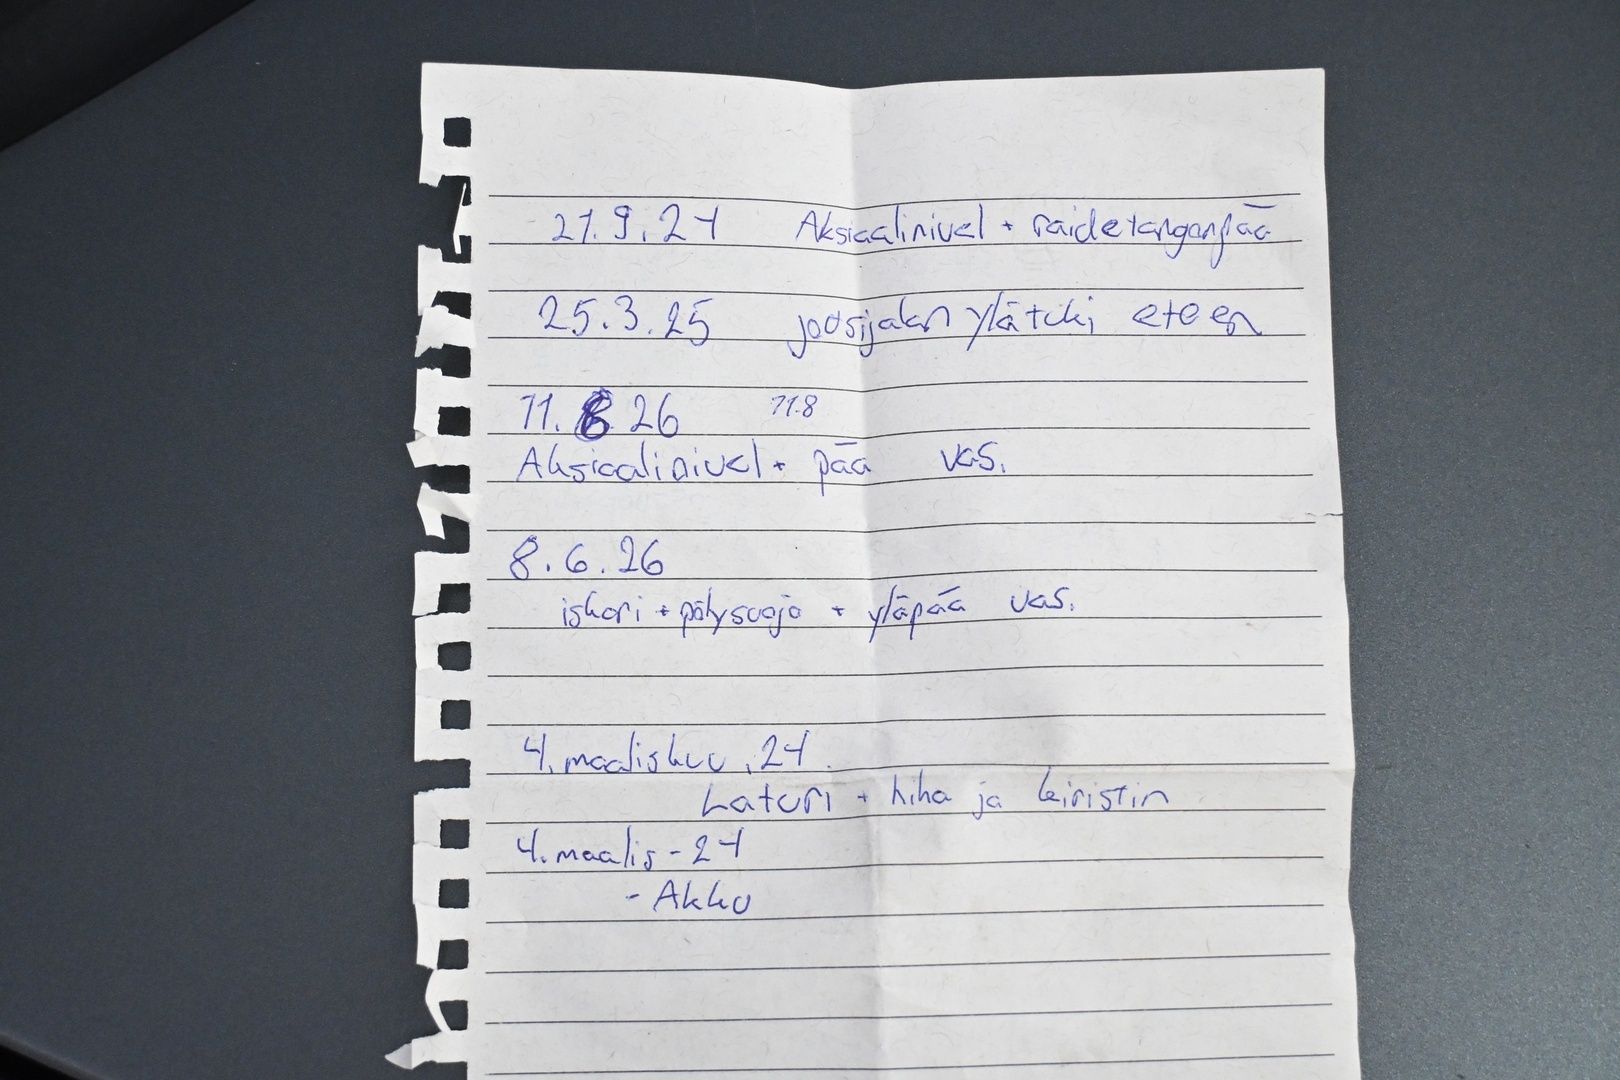 21.9.24 Aksiaalinivel + raidetanganpää
25.3.25 jousijalan ylätuki eteen
11.8.26 11.8
Aksiaalinivel + pää vas.
8.6.26
iskari + pölysuoja + yläpää vas.
4.maaliskuu.24.
Laturi + hihna ja kiristin
4.maalis-24
- Akku